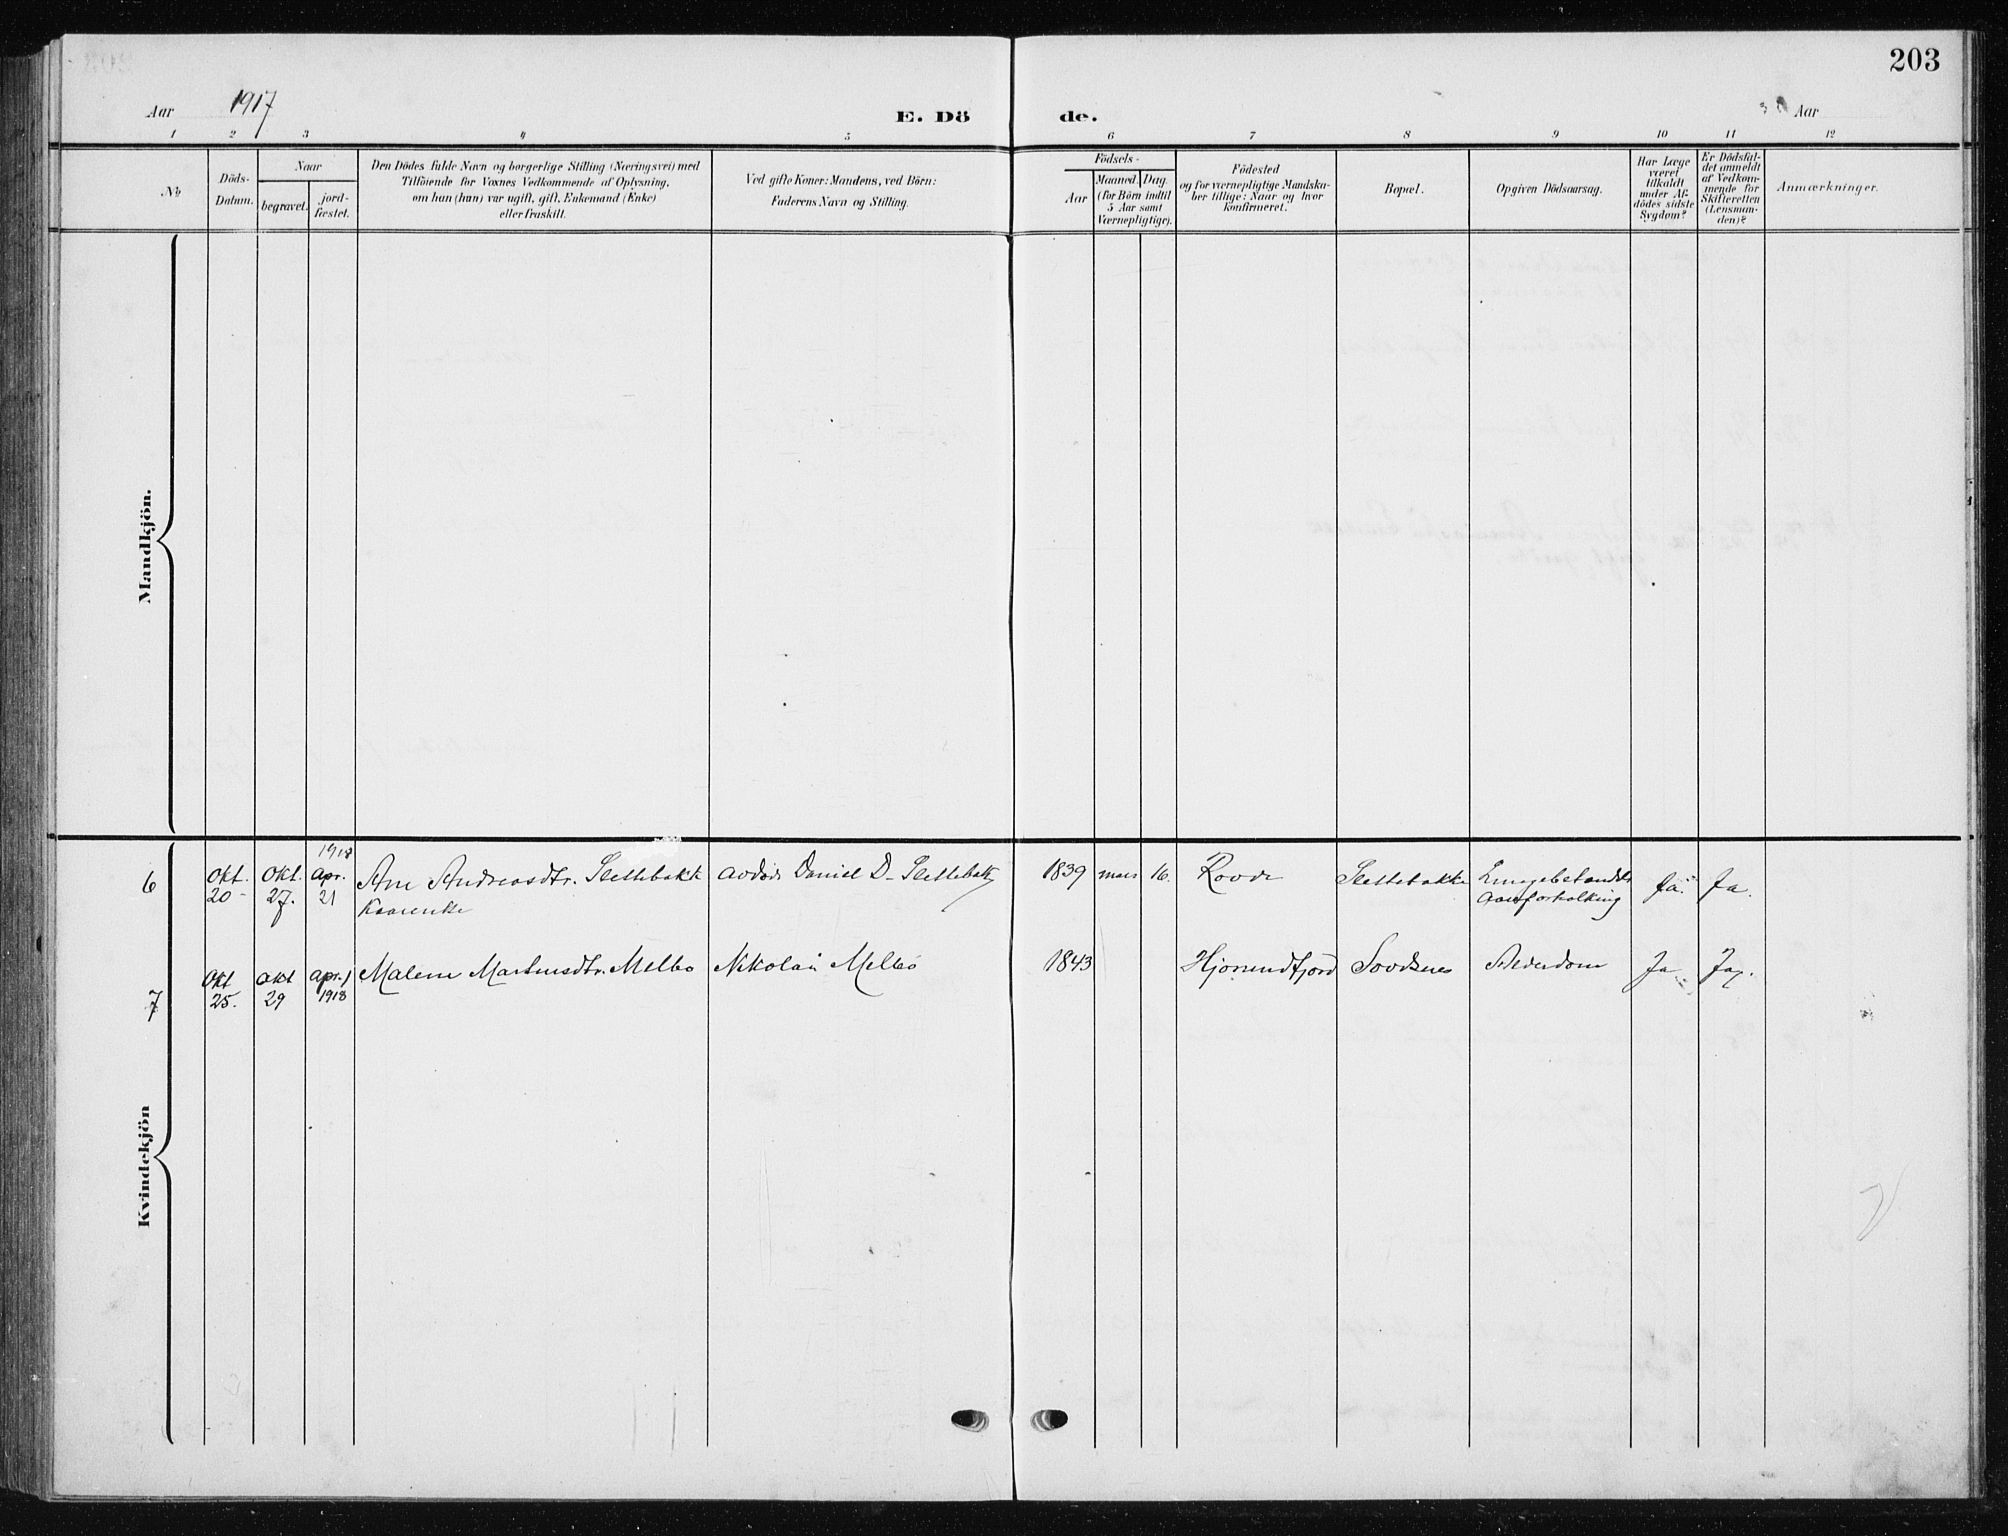 203
Aar 1917
E. Dö de.
Aar
1 2 3 4 5 6 7 8 9 10 11 12
No
Döds-
Datum.
Naar
begravet.
jord-
fæstet.
Den Dödes fulde Navn og borgerlige Stilling (Næringsvei) med
Tilföiende for Voxnes Vedkommende af Oplysning,
om hun (han) var ugift, gift, Enkemand (Enke)
eller fraskilt.
Ved gifte Koner: Mandens, ved Börn:
Faderens Navn og Stilling.
Födsels-
Aar
Maaned. Dag.
(for Börn indtil
5 Aar samt
Værnepligtige).
Födested
og for værnepligtige Mandska-
ber tillige: Naar og hvor
konfirmeret.
Bopæl.
Opgiven Dödsaarsag.
Har Læge
været
tilkaldt
under Af-
dödes sidste
Sygdom?
Er Dödsfal-
det anmeldt
af Vedkom-
mende for
Skifteretten
(Lensman-
den)?
Anmærkninger.
Mandkjön.
1918
6 Okt. Okt. apr. Ane Andreasdtr. Slettebakk avdöde Daniel D. Slettebakk 1839 mars 16. Rovde Slettebakke Lungebetændelse Ja. Ja.
20 27. 21 Kaarenke Aareforkalking
7 Okt Okt apr. Malene Martinsdtr. Melbö Nikolai Melbö 1843 Hjörundfjord Sovdsnes Alderdom Ja Ja.
25. 29 1918
Kvindekjön